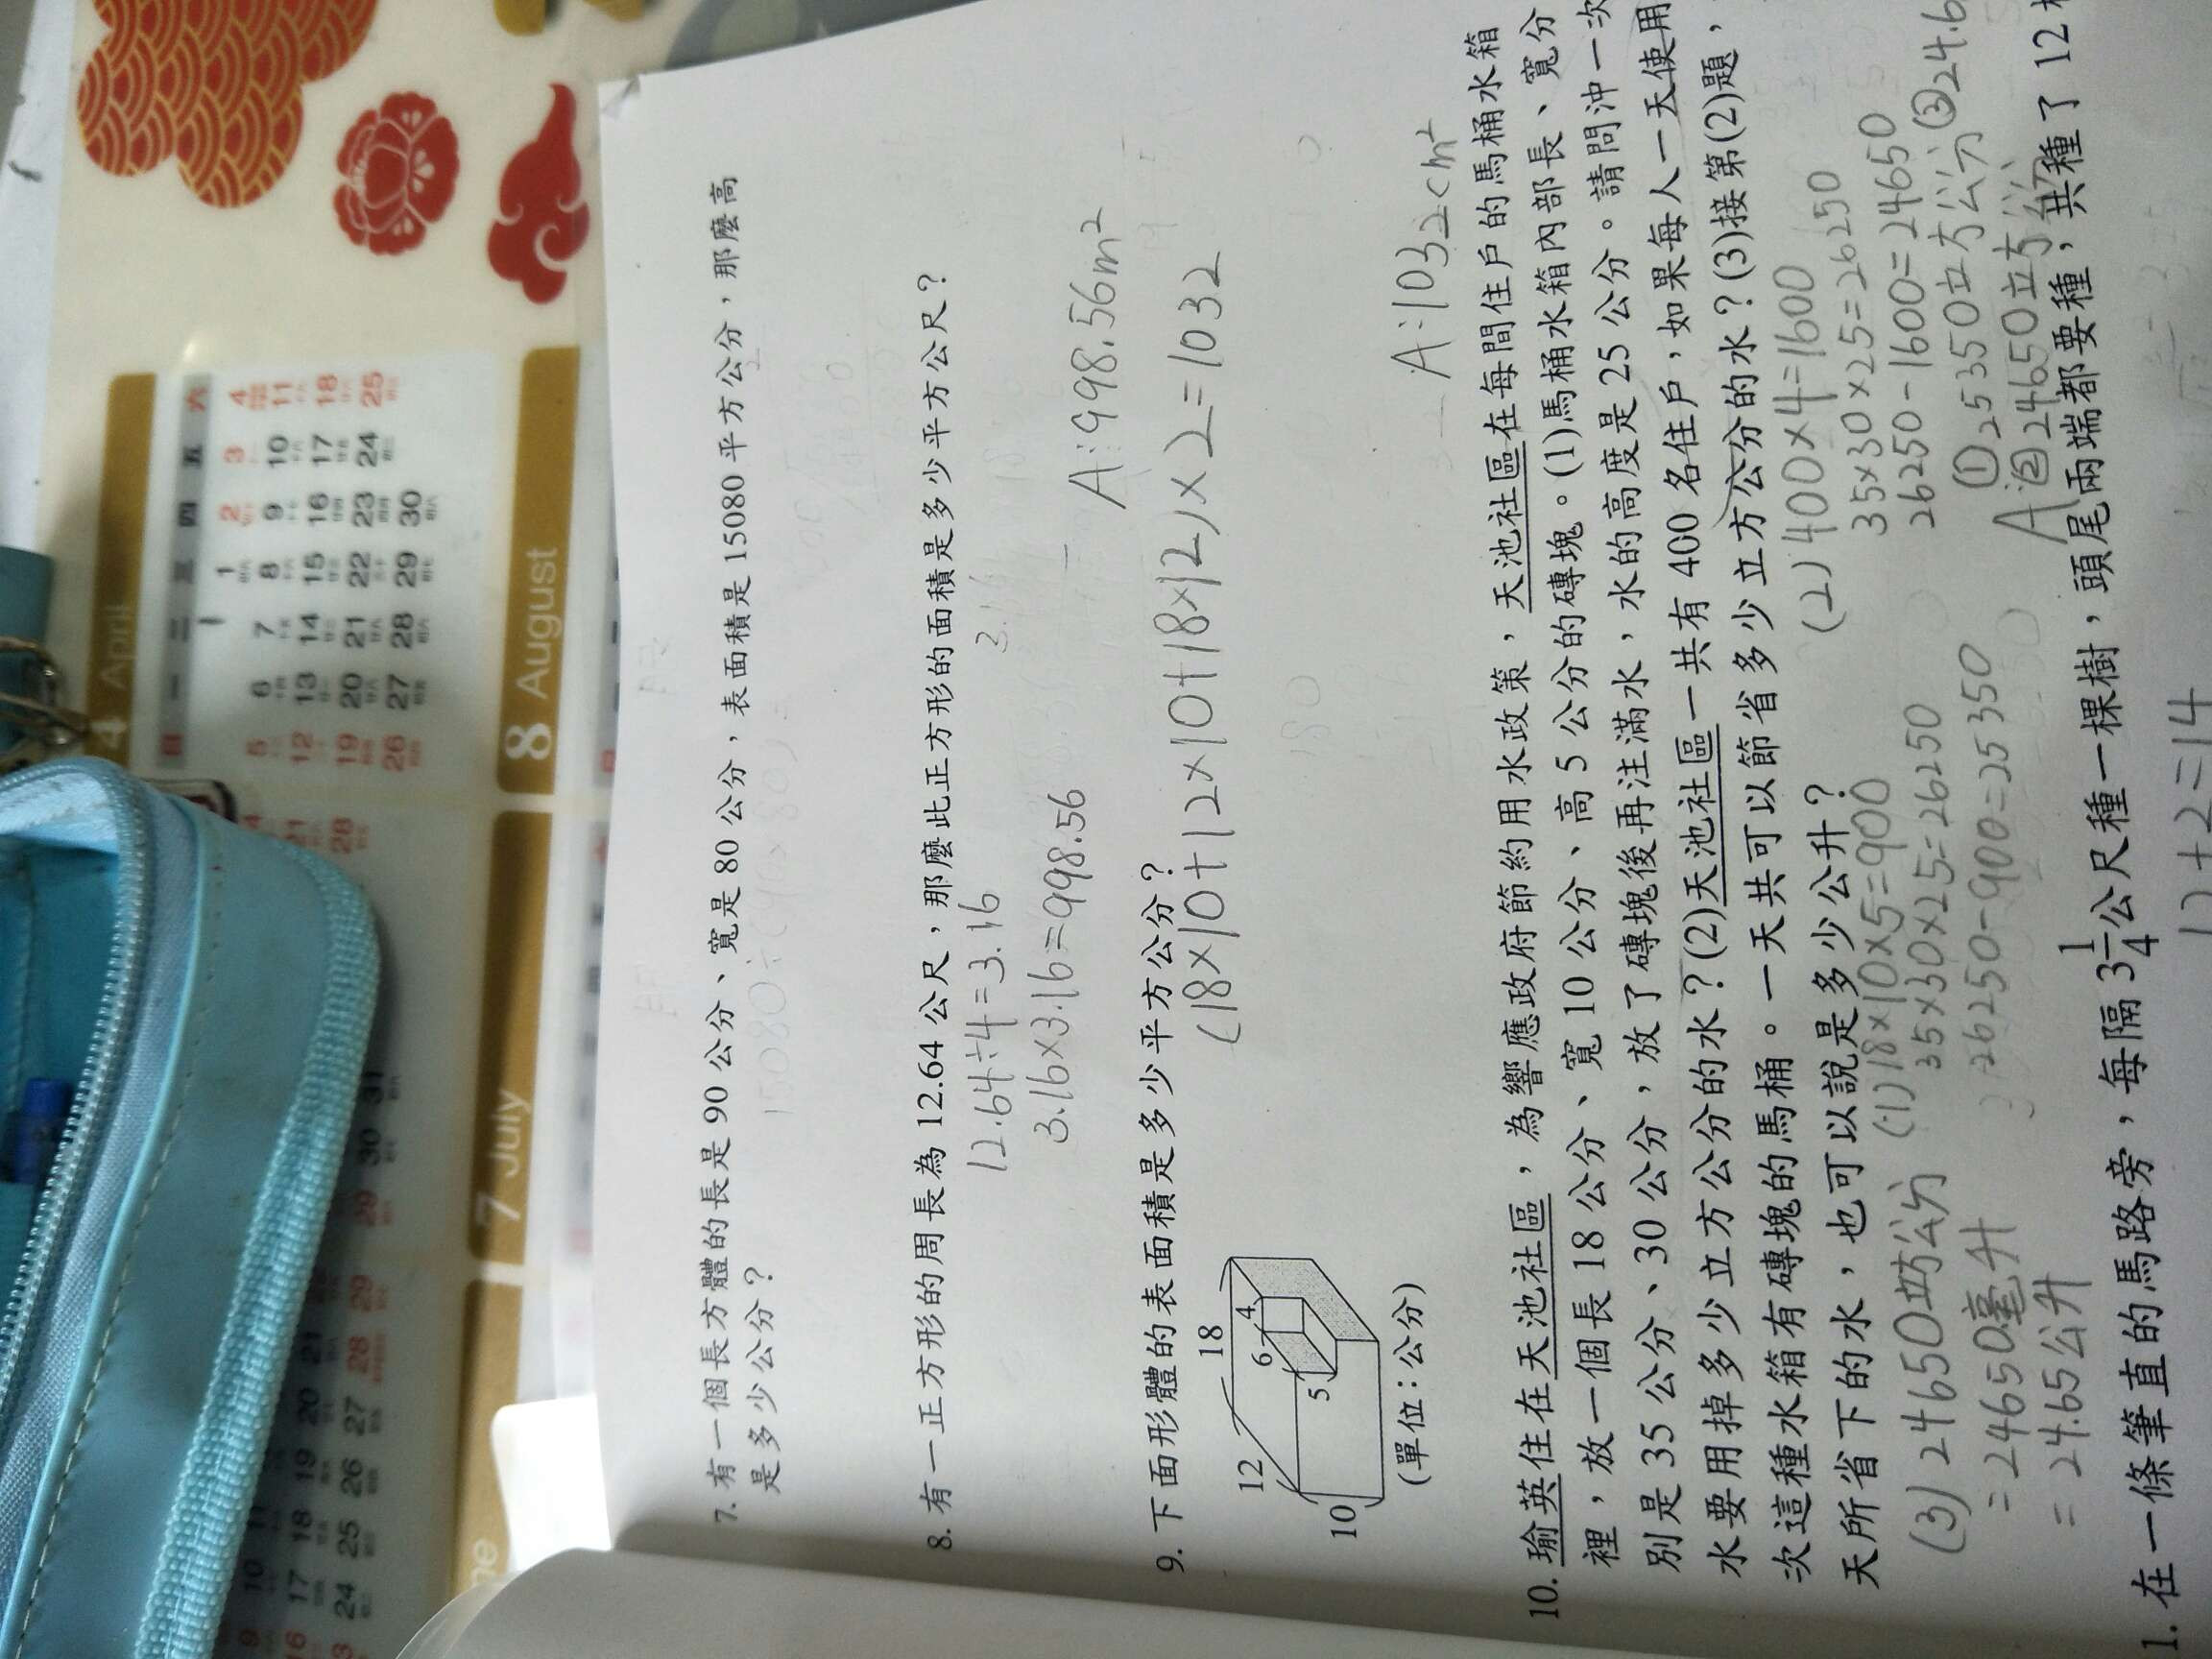 7. 有一個長方體的長是 90 公分、寬是 80 公分，表面積是 15080 平方公分，那麼高
是多少公分？
8. 有一正方形的周長為 12.64 公尺，那麼此正方形的面積是多少平方公尺？
12.64÷4=3.16
3.16×3.16=998.56
A:998.56m²
9. 下面形體的表面積是多少平方公分？
(18×10+12×10+18×12)×2=1032
12
18
6
4
5
10
(單位：公分)
A:1032cm²
10. 瑜英住在天池社區，為響應政府節約用水政策，天池社區在每間住戶的馬桶水箱
裡，放一個長 18 公分、寬 10 公分、高 5 公分的磚塊。(1)馬桶水箱內部長、寬分
別是 35 公分、30 公分，放了磚塊後再注滿水，水的高度是 25 公分。請問沖一次
水要用掉多少立方公分的水？(2)天池社區一共有 400 名住戶，如果每人一天使用
次這種水箱有磚塊的馬桶。一天共可以節省多少立方公分的水？(3)接第(2)題，
天所省下的水，也可以說是多少公升？
(1)18×10×5=900
35×30×25=26250
26250-900=25350
(2)400×4=1600
35×30×25=26250
26250-1600=24650
(3)24650立方公分
=24650毫升
=24.65公升
①25350立方公分 ③24.6
A ②24650立方公分
1. 在一條筆直的馬路旁，每隔 3 1/4 公尺種一棵樹，頭尾兩端都要種，共種了 12
12+2=14
4 April
日 一 二 三 四 五 六
1 2 3 4
5 6 7 8 9 10 11
12 13 14 15 16 17 18
19 20 21 22 23 24 25
26 27 28 29 30
8 August
7 July